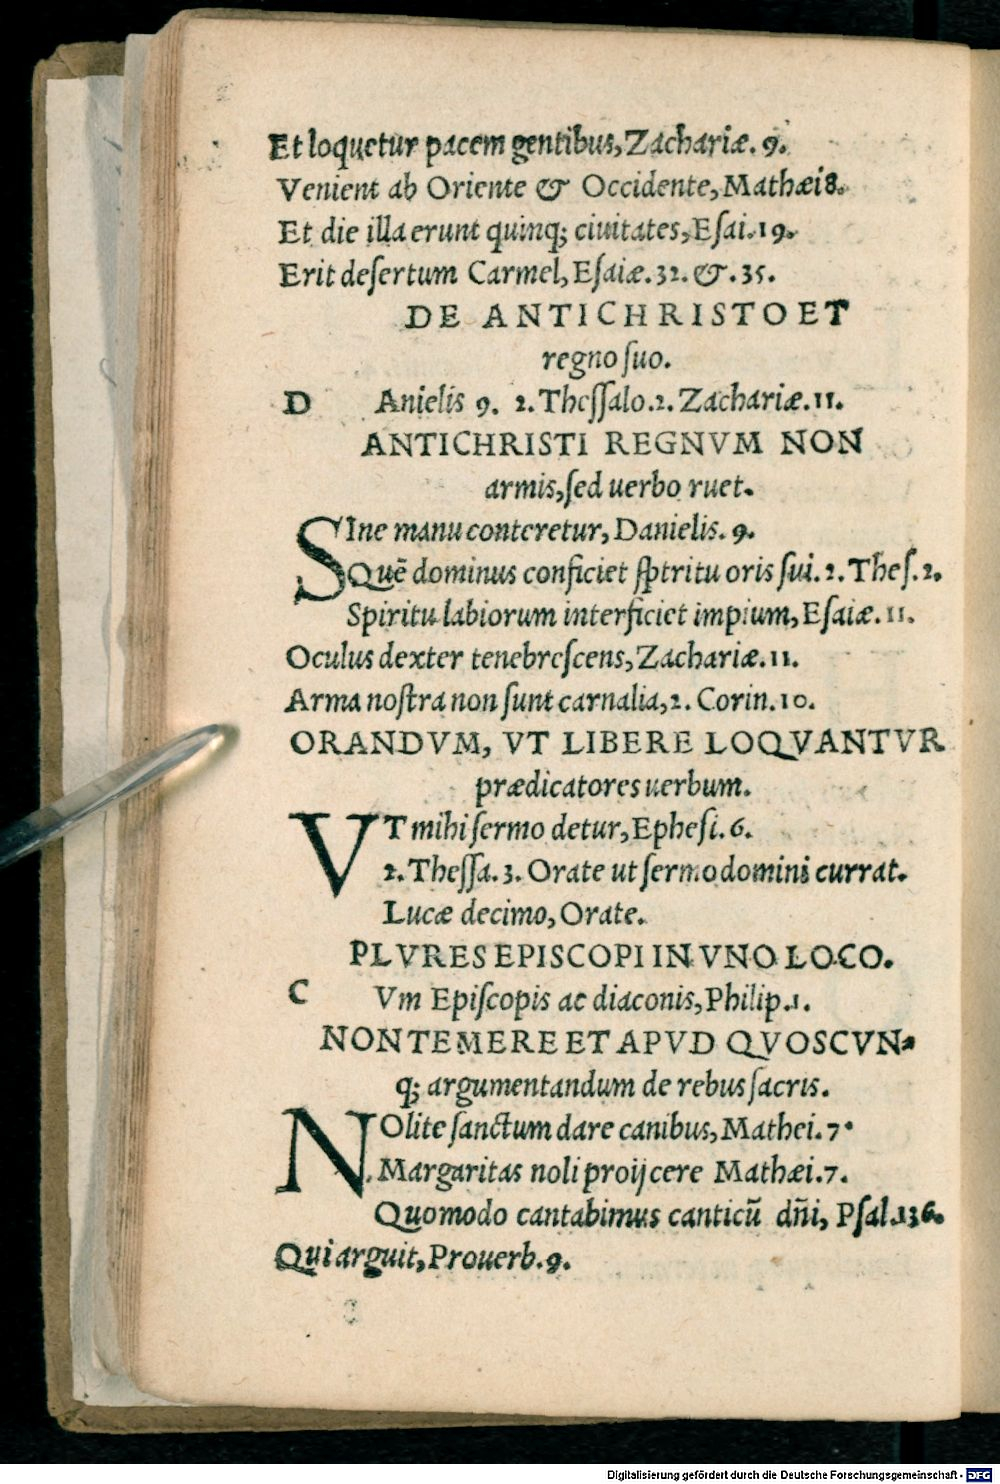 Et loquetur pacem gentibus, Zachariæ. 9.
Venient ab Oriente & Occidente, Mathæi 8.
Et die illa erunt quinq; ciuitates, Eſai. 19.
Erit deſertum Carmel, Eſaiæ. 32. &. 35.
DE ANTICHRISTO ET
regno ſuo.
D Anielis 9. 2. Theſſalo. 2. Zachariæ. 11.
ANTICHRISTI REGNVM NON
armis, ſed uerbo ruet.
SIne manu conteretur, Danielis. 9.
Quē dominus conficiet ſptritu oris ſui. 2. Theſ. 2.
Spiritu labiorum interficiet impium, Eſaiæ. 11.
Oculus dexter tenebreſcens, Zachariæ. 11.
Arma noſtra non ſunt carnalia, 2. Corin. 10.
ORANDVM, VT LIBERE LOQVANTVR
prædicatores uerbum.
VT mihi ſermo detur, Epheſi. 6.
2. Theſſa. 3. Orate ut ſermo domini currat.
Lucæ decimo, Orate.
PLVRES EPISCOPI IN VNO LOCO.
C Vm Epiſcopis ac diaconis, Philip. 1.
NON TEMERE ET APVD QVOSCVN-
q; argumentandum de rebus ſacris.
NOlite ſanctum dare canibus, Mathei. 7.
Margaritas noli proijcere Mathæi. 7.
Quomodo cantabimus canticū dñi, Pſal. 136.
Qui arguit, Prouerb. 9.
Digitalisierung gefördert durch die Deutsche Forschungsgemeinschaft - DFG